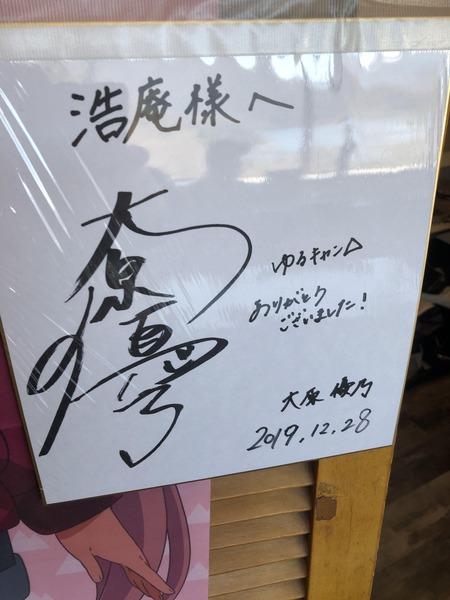 浩庵様へ
大原優乃
ゆるキャン△
ありがとう
ございました!
大原 優乃
2019.12.28